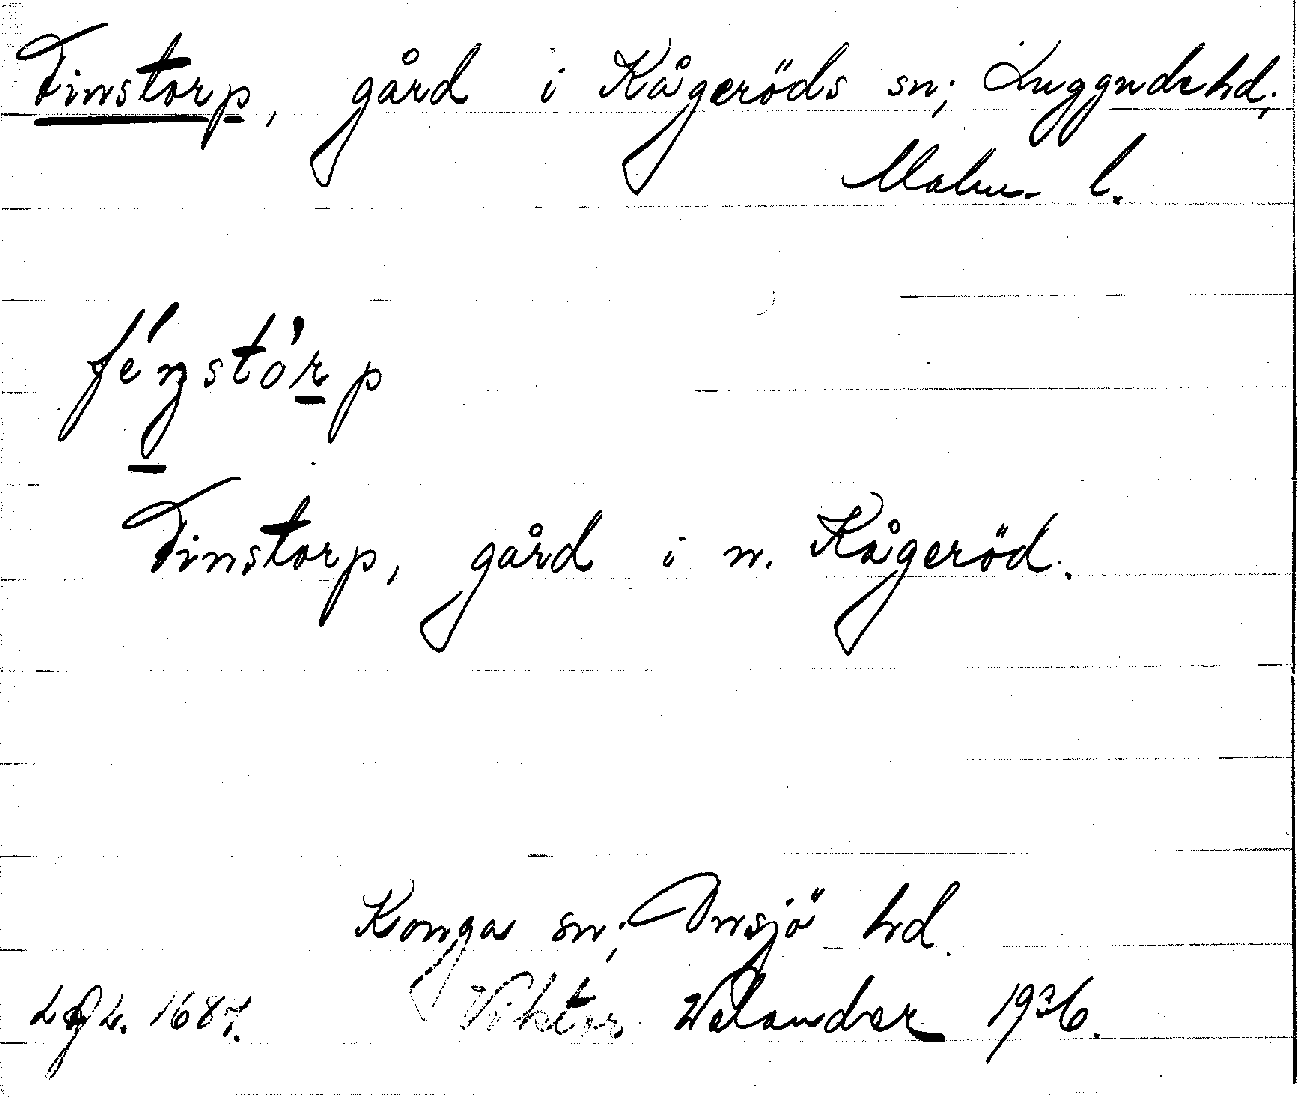 Finstorp, gård i Kågeröds sn; Luggude hd;
Malm. l.
fénstórp
Finstorp, gård i n. Kågeröd.
Konga sn; Onsjö hd.
1687.
Viktor Welander 1936.